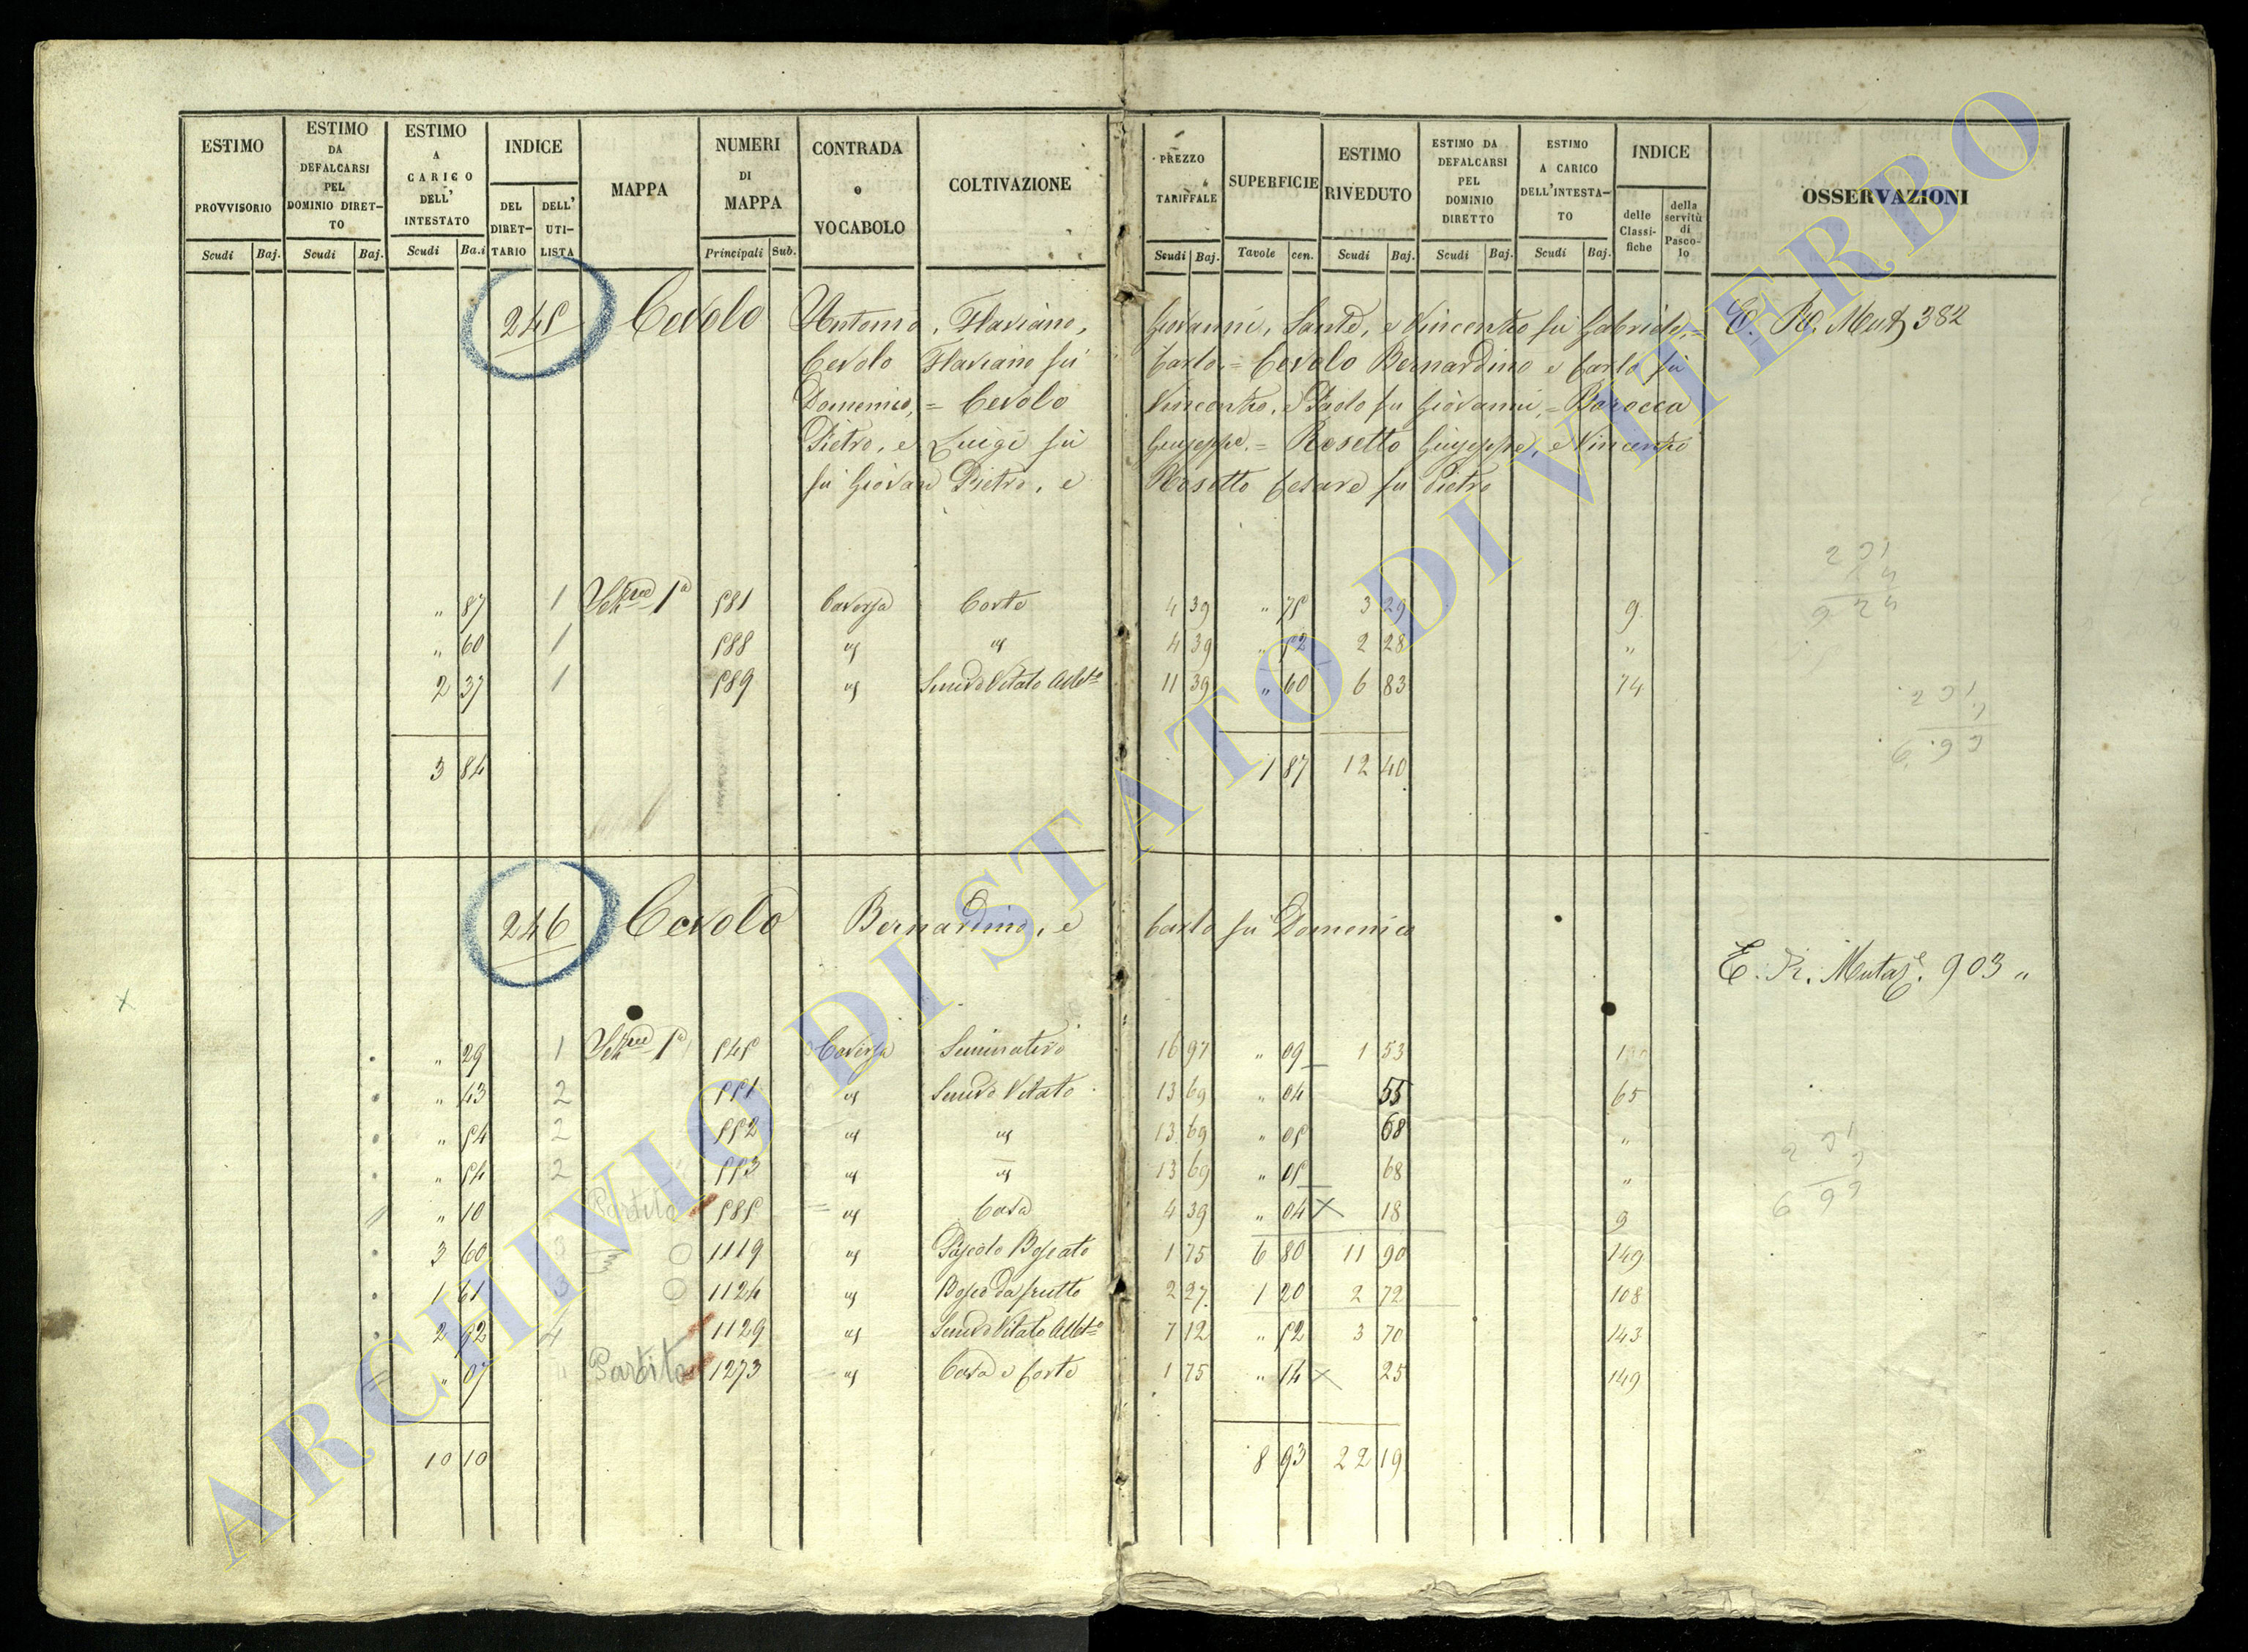 ESTIMO PROVVISORIO Scudi Baj.
ESTIMO DA DEFALCARSI PEL DOMINIO DIRETTO Scudi Baj.
ESTIMO A CARICO DELL' INTESTATO Scudi Ba.i
INDICE DEL DIRETTARIO DELL' UTILISTA
MAPPA
NUMERI DI MAPPA Principali Sub.
CONTRADA o VOCABOLO
COLTIVAZIONE
PREZZO TARIFFALE Scudi Baj.
SUPERFICIE Tavole cen.
ESTIMO RIVEDUTO Scudi Baj.
ESTIMO DA DEFALCARSI PEL DOMINIO DIRETTO Scudi Baj.
ESTIMO A CARICO DELL'INTESTATO Scudi Baj.
INDICE delle Classifiche della servitù di Pascolo
OSSERVAZIONI
245 Cevolo Antonio, Flaviano, Giovanni, Sante, e Vincenzo fu Gabriele = E. R. Mut 382
Cevolo Flaviano fu Carlo = Cevolo Bernardino e Carlo fu
Domenico, = Cevolo Vincenzo, e Paolo fu Giovanni, = Barocca
Pietro, e Luigi fu Giuseppe. = Rosetto Giuseppe, e Vincenzo
fu Giovan Pietro, e Rosetto Cesare fu Pietro
" 87 1 Sez.ne 1a 581 Caversa Corte 4 39 " 75 3 29 9
" 60 1 588 " " 4 39 " 52 2 28 "
2 37 1 589 " Semvo Vitato Alb.to 11 39 " 60 6 83 74
3 84 1 87 12 40
246 Cevolo Bernardino, e Carlo fu Domenico
E. R. Mutaz.e 903 "
" 29 1 Sez.ne 1a 545 Caversa Seminativo 16 97 " 09 1 53
" 43 2 551 " Semvo Vitato 13 69 " 04 55 65
" 54 2 552 " " 13 69 " 05 68 "
" 54 2 553 " " 13 69 " 05 68 "
" 10 Partita 585 " Casa 4 39 " 04 × 18 9
3 60 3 1119 " Pascolo Boscato 1 75 6 80 11 90 149
1 61 3 1124 " Bosco da frutto 2 27 1 20 2 72 108
2 92 4 1129 " Semvo Vitato Alb.to 7 12 " 52 3 70 143
" 07 Partita 1273 " Casa e Corte 1 75 " 14 × 25 149
10 10 8 93 22 19
ARCHIVIO DI STATO DI VITERBO